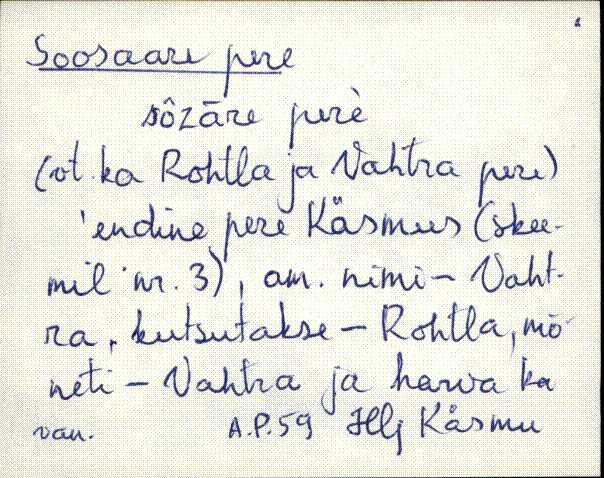 Soosaare pere
sôzāre perè
(vt. ka Rohtla ja Vahtra pere)
'endine pere Käsmus (skee-
mil nr. 3), am. nimi – Vaht-
ra, kutsutakse – Rohtla, mõ-
neti – Vahtra ja harva ka
van. A.P.59 Hlj Käsmu